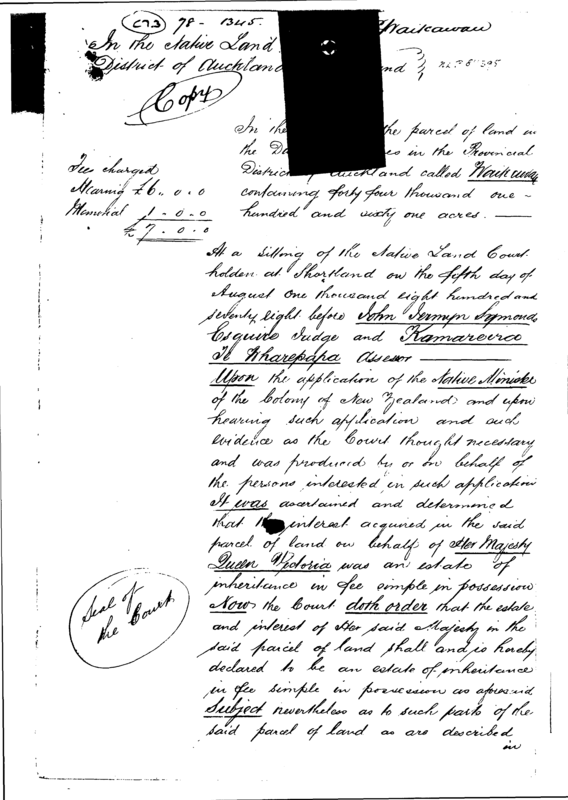 C73 78-1345.
Waikawau
In the Native Land
District of Auckland
Copy
In the the parcel of land in
the in the Provincial
District Auckland called Waikawau
containing forty four thousand one-
hundred and sixty one acres.
Fees charged
Hearing £6.. 0.0
Memorial 1.0.0
£ 7.0.0
At a sitting of the Native Land Court
holden at Shortland on the fifth day of
August one thousand eight hundred and
seventy eight before John Jermyn Symonds
Esquire Judge and Kamareira
Te Wharepapa Assessor
Upon the application of the Native Minister
of the Colony of New Zealand and upon
hearing such application and such
evidence as the Court thought necessary
and was produced by or on behalf of
the persons interested in such application
It was ascertained and determined
that the interest acquired in the said
parcel of land on behalf of Her Majesty
Queen Victoria was an estate of
inheritance in fee simple in possession
Now the Court doth order that the estate
and interest of Her said Majesty in the
said parcel of land shall and is hereby
declared to be an estate of inheritance
in fee simple in possession as aforesaid
Subject nevertheless as to such parts of the
said parcel of land as are described
in
Seal of
the Court